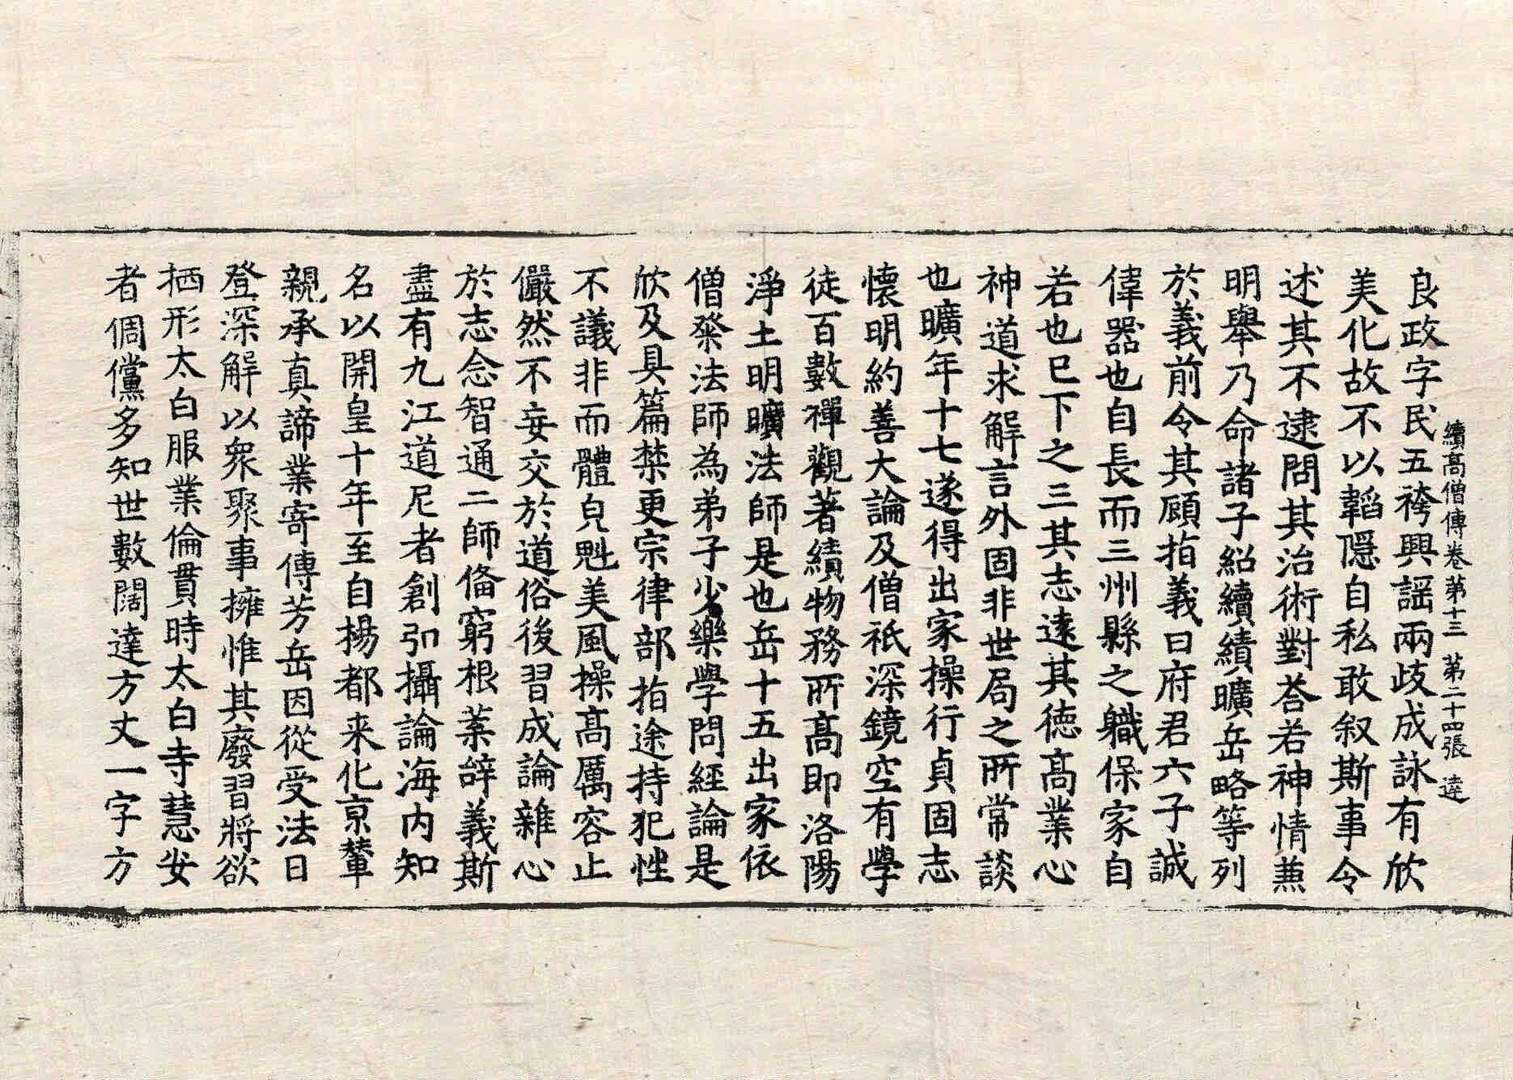 續高僧傳卷第十三 第二十四張 達
良政字民五袴興謡兩歧成詠有欣
美化故不以韜隱自私敢叙斯事令
述其不逮問其治術對荅若神情兼
明舉乃命諸子紹續績曠岳略等列
於義前令其顧指義曰府君六子誠
偉器也自長而三州縣之職保家自
若也已下之三其志遠其徳髙業心
神道求解言外固非世局之所常談
也曠年十七遂得出家操行貞固志
懷明約善大論及僧祇深鏡空有學
徒百數禪觀著績物務所髙即洛陽
淨土明曠法師是也岳十五出家依
僧粲法師為弟子少樂學問經論是
欣及具篇禁更宗律部指途持犯性
不議非而體皃魁美風操髙厲容止
儼然不妄交於道俗後習成論雜心
於志念智通二師俻窮根葉辝義斯
盡有九江道尼者創引攝論海内知
名以開皇十年至自楊都来化京輦
親承真諦業寄傳芳岳因從受法日
登深解以衆聚事擁惟其廢習將欲
栖形太白服業倫貫時太白寺慧安
者倜儻多知世數闊達方丈一字方